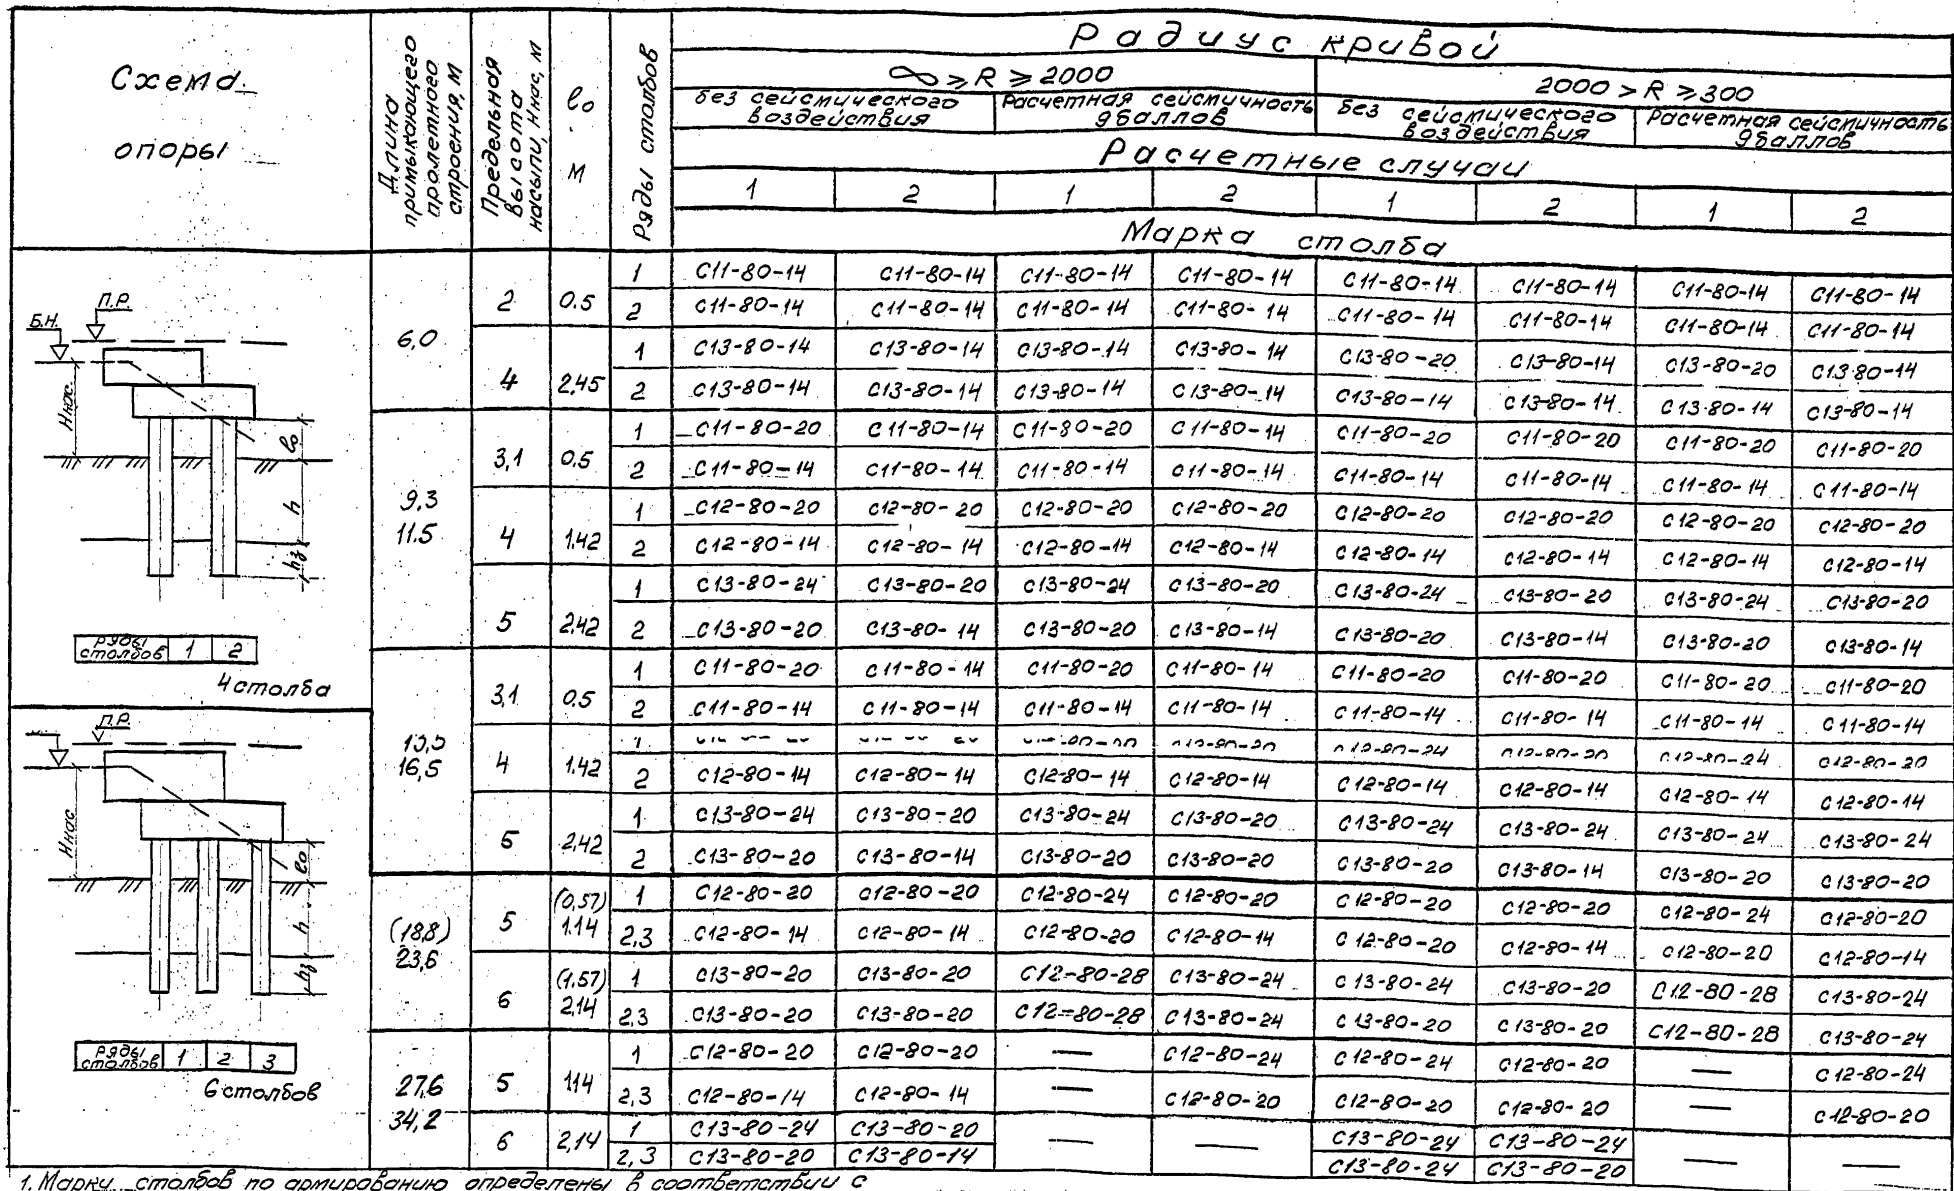 Схема
опоры
Длина примыкающего пролетного строения, м
Предельная высота насыпи, Ннас, м
ℓ₀ м
Ряды столбов
Радиус кривой
∞ ⩾ R ⩾ 2000
2000 > R ⩾ 300
без сейсмического воздействия
Расчетная сейсмичность 9 баллов
без сейсмического воздействия
Расчетная сейсмичность 9 баллов
Расчетные случаи
1 2 1 2 1 2 1 2
Марка столба
6,0
2 0.5 1 С11-80-14 С11-80-14 С11-80-14 С11-80-14 С11-80-14 С11-80-14 С11-80-14 С11-80-14
2 С11-80-14 С11-80-14 С11-80-14 С11-80-14 С11-80-14 С11-80-14 С11-80-14 С11-80-14
4 2,45 1 С13-80-14 С13-80-14 С13-80-14 С13-80-14 С13-80-20 С13-80-14 С13-80-20 С13-80-14
2 С13-80-14 С13-80-14 С13-80-14 С13-80-14 С13-80-14 С13-80-14 С13-80-14 С13-80-14
9,3
11.5
3,1 0.5 1 С11-80-20 С11-80-14 С11-80-20 С11-80-14 С11-80-20 С11-80-20 С11-80-20 С11-80-20
2 С11-80-14 С11-80-14 С11-80-14 С11-80-14 С11-80-14 С11-80-14 С11-80-14 С11-80-14
4 1.42 1 С12-80-20 С12-80-20 С12-80-20 С12-80-20 С12-80-20 С12-80-20 С12-80-20 С12-80-20
2 С12-80-14 С12-80-14 С12-80-14 С12-80-14 С12-80-14 С12-80-14 С12-80-14 С12-80-14
5 2,42 1 С13-80-24 С13-80-20 С13-80-24 С13-80-20 С13-80-24 С13-80-20 С13-80-24 С13-80-20
2 С13-80-20 С13-80-14 С13-80-20 С13-80-14 С13-80-20 С13-80-14 С13-80-20 С13-80-14
16,5
3,1 0.5 1 С11-80-20 С11-80-14 С11-80-20 С11-80-14 С11-80-20 С11-80-20 С11-80-20 С11-80-20
2 С11-80-14 С11-80-14 С11-80-14 С11-80-14 С11-80-14 С11-80-14 С11-80-14 С11-80-14
4 1.42 1 С12-80-20 С12-80-24 С12-80-20 С12-80-24 С12-80-20
2 С12-80-14 С12-80-14 С12-80-14 С12-80-14 С12-80-14 С12-80-14 С12-80-14 С12-80-14
5 2,42 1 С13-80-24 С13-80-20 С13-80-24 С13-80-20 С13-80-24 С13-80-24 С13-80-24 С13-80-24
2 С13-80-20 С13-80-14 С13-80-20 С13-80-20 С13-80-20 С13-80-14 С13-80-20 С13-80-20
(18,8)
23,6
5 (0,57) 1.14 1 С12-80-20 С12-80-20 С12-80-24 С12-80-20 С12-80-20 С12-80-20 С12-80-24 С12-80-20
2,3 С12-80-14 С12-80-14 С12-80-20 С12-80-14 С12-80-20 С12-80-14 С12-80-20 С12-80-14
6 (1,57) 2,14 1 С13-80-20 С13-80-20 С12-80-28 С13-80-24 С13-80-24 С13-80-20 С12-80-28 С13-80-24
2,3 С13-80-20 С13-80-20 С12-80-28 С13-80-24 С13-80-20 С13-80-20 С12-80-28 С13-80-24
27,6
34,2
5 1,14 1 С12-80-20 С12-80-20 — С12-80-24 С12-80-24 С12-80-20 — С12-80-24
2,3 С12-80-14 С12-80-14 — С12-80-20 С12-80-20 С12-80-20 — С12-80-20
6 2,14 1 С13-80-24 С13-80-20 — — С13-80-24 С13-80-24 — —
2,3 С13-80-20 С13-80-14 С13-80-24 С13-80-20
П.Р.
Б.Н.
Ннас.
ℓ₀
h
hз
ряды столбов 1 2
4 столба
П.Р.
Ннас
ℓ₀
h
hз
ряды столбов 1 2 3
6 столбов
1. Марки столбов по армированию определены в соответствии с